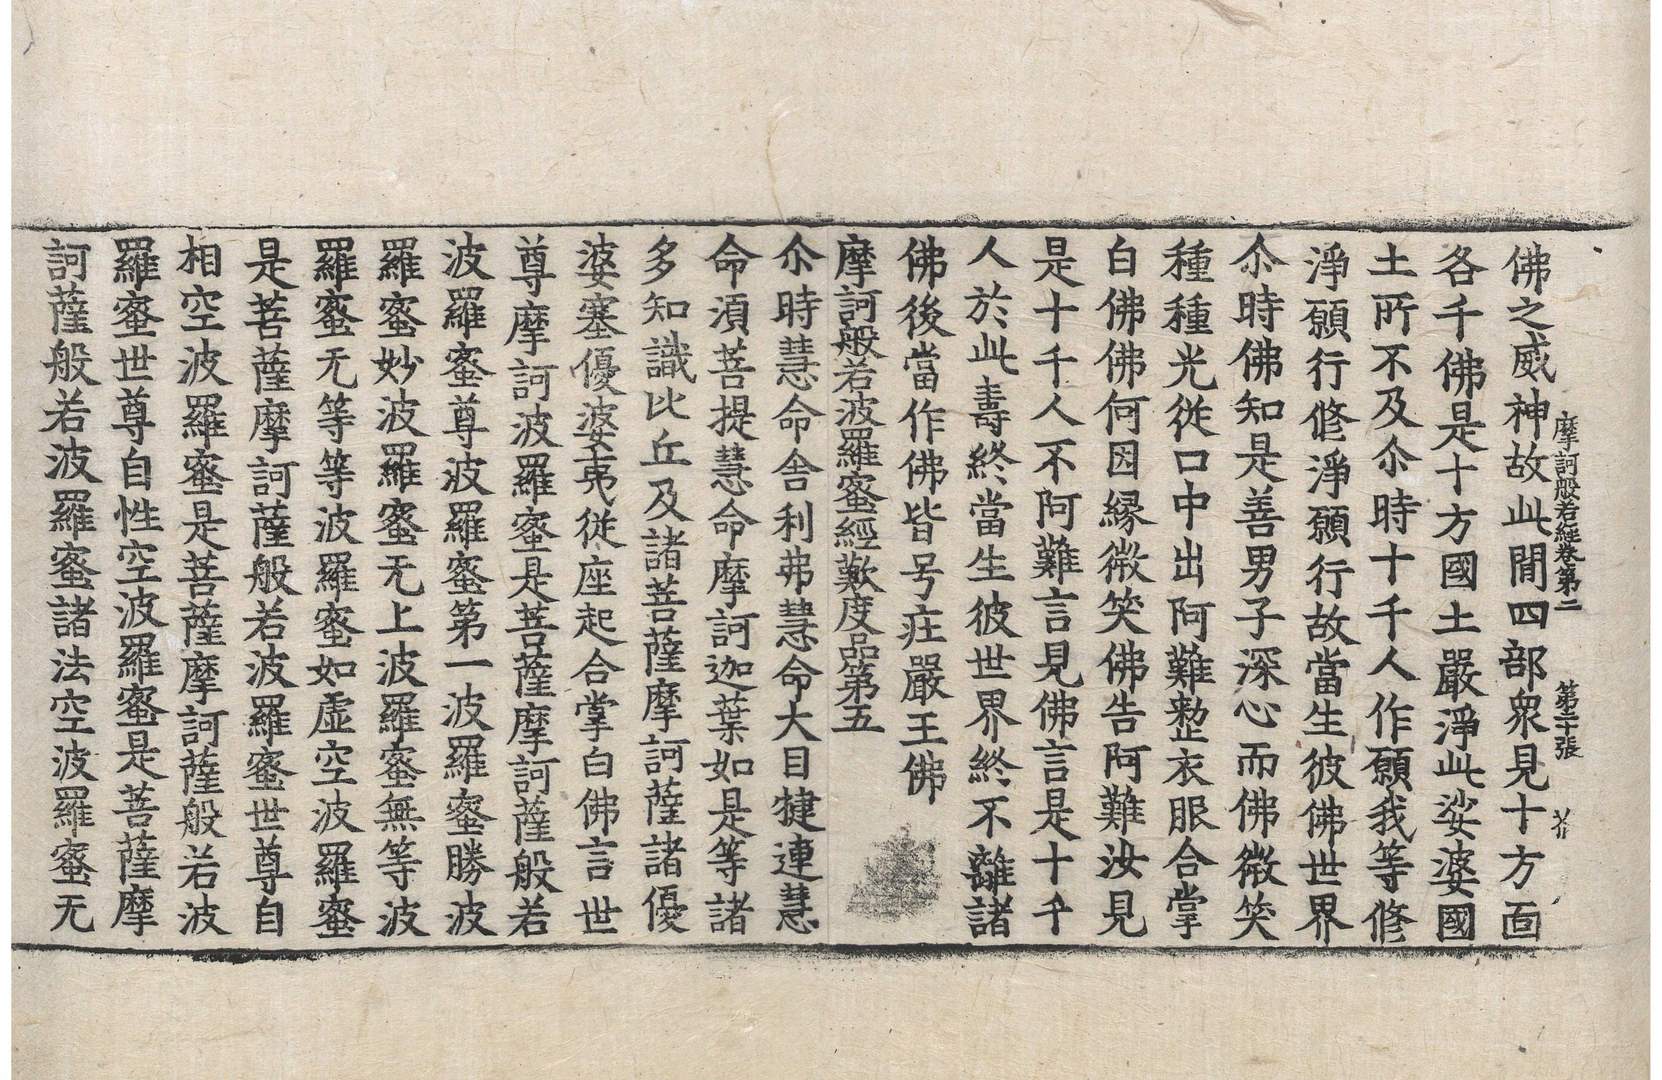 摩訶般若經卷第二 第二十張 芥
佛之威神故此間四部衆見十方面
各千佛是十方國土嚴淨此娑婆國
土所不及尒時十千人作願我等修
淨願行修淨願行故當生彼佛世界
尒時佛知是善男子深心而佛微笑
種種光從口中出阿難整衣服合掌
白佛佛何因緣微笑佛告阿難汝見
是十千人不阿難言見佛言是十千
人於此壽終當生彼世界終不離諸
佛後當作佛皆号庄嚴王佛
摩訶般若波羅蜜經歎度品第五
尒時慧命舍利弗慧命大目揵連慧
命湏菩提慧命摩訶迦葉如是等諸
多知識比丘及諸菩薩摩訶薩諸優
婆塞優婆夷從座起合掌白佛言世
尊摩訶波羅蜜是菩薩摩訶薩般若
波羅蜜尊波羅蜜第一波羅蜜勝波
羅蜜妙波羅蜜无上波羅蜜無等波
羅蜜无等等波羅蜜如虛空波羅蜜
是菩薩摩訶薩般若波羅蜜世尊自
相空波羅蜜是菩薩摩訶薩般若波
羅蜜世尊自性空波羅蜜是菩薩摩
訶薩般若波羅蜜諸法空波羅蜜无